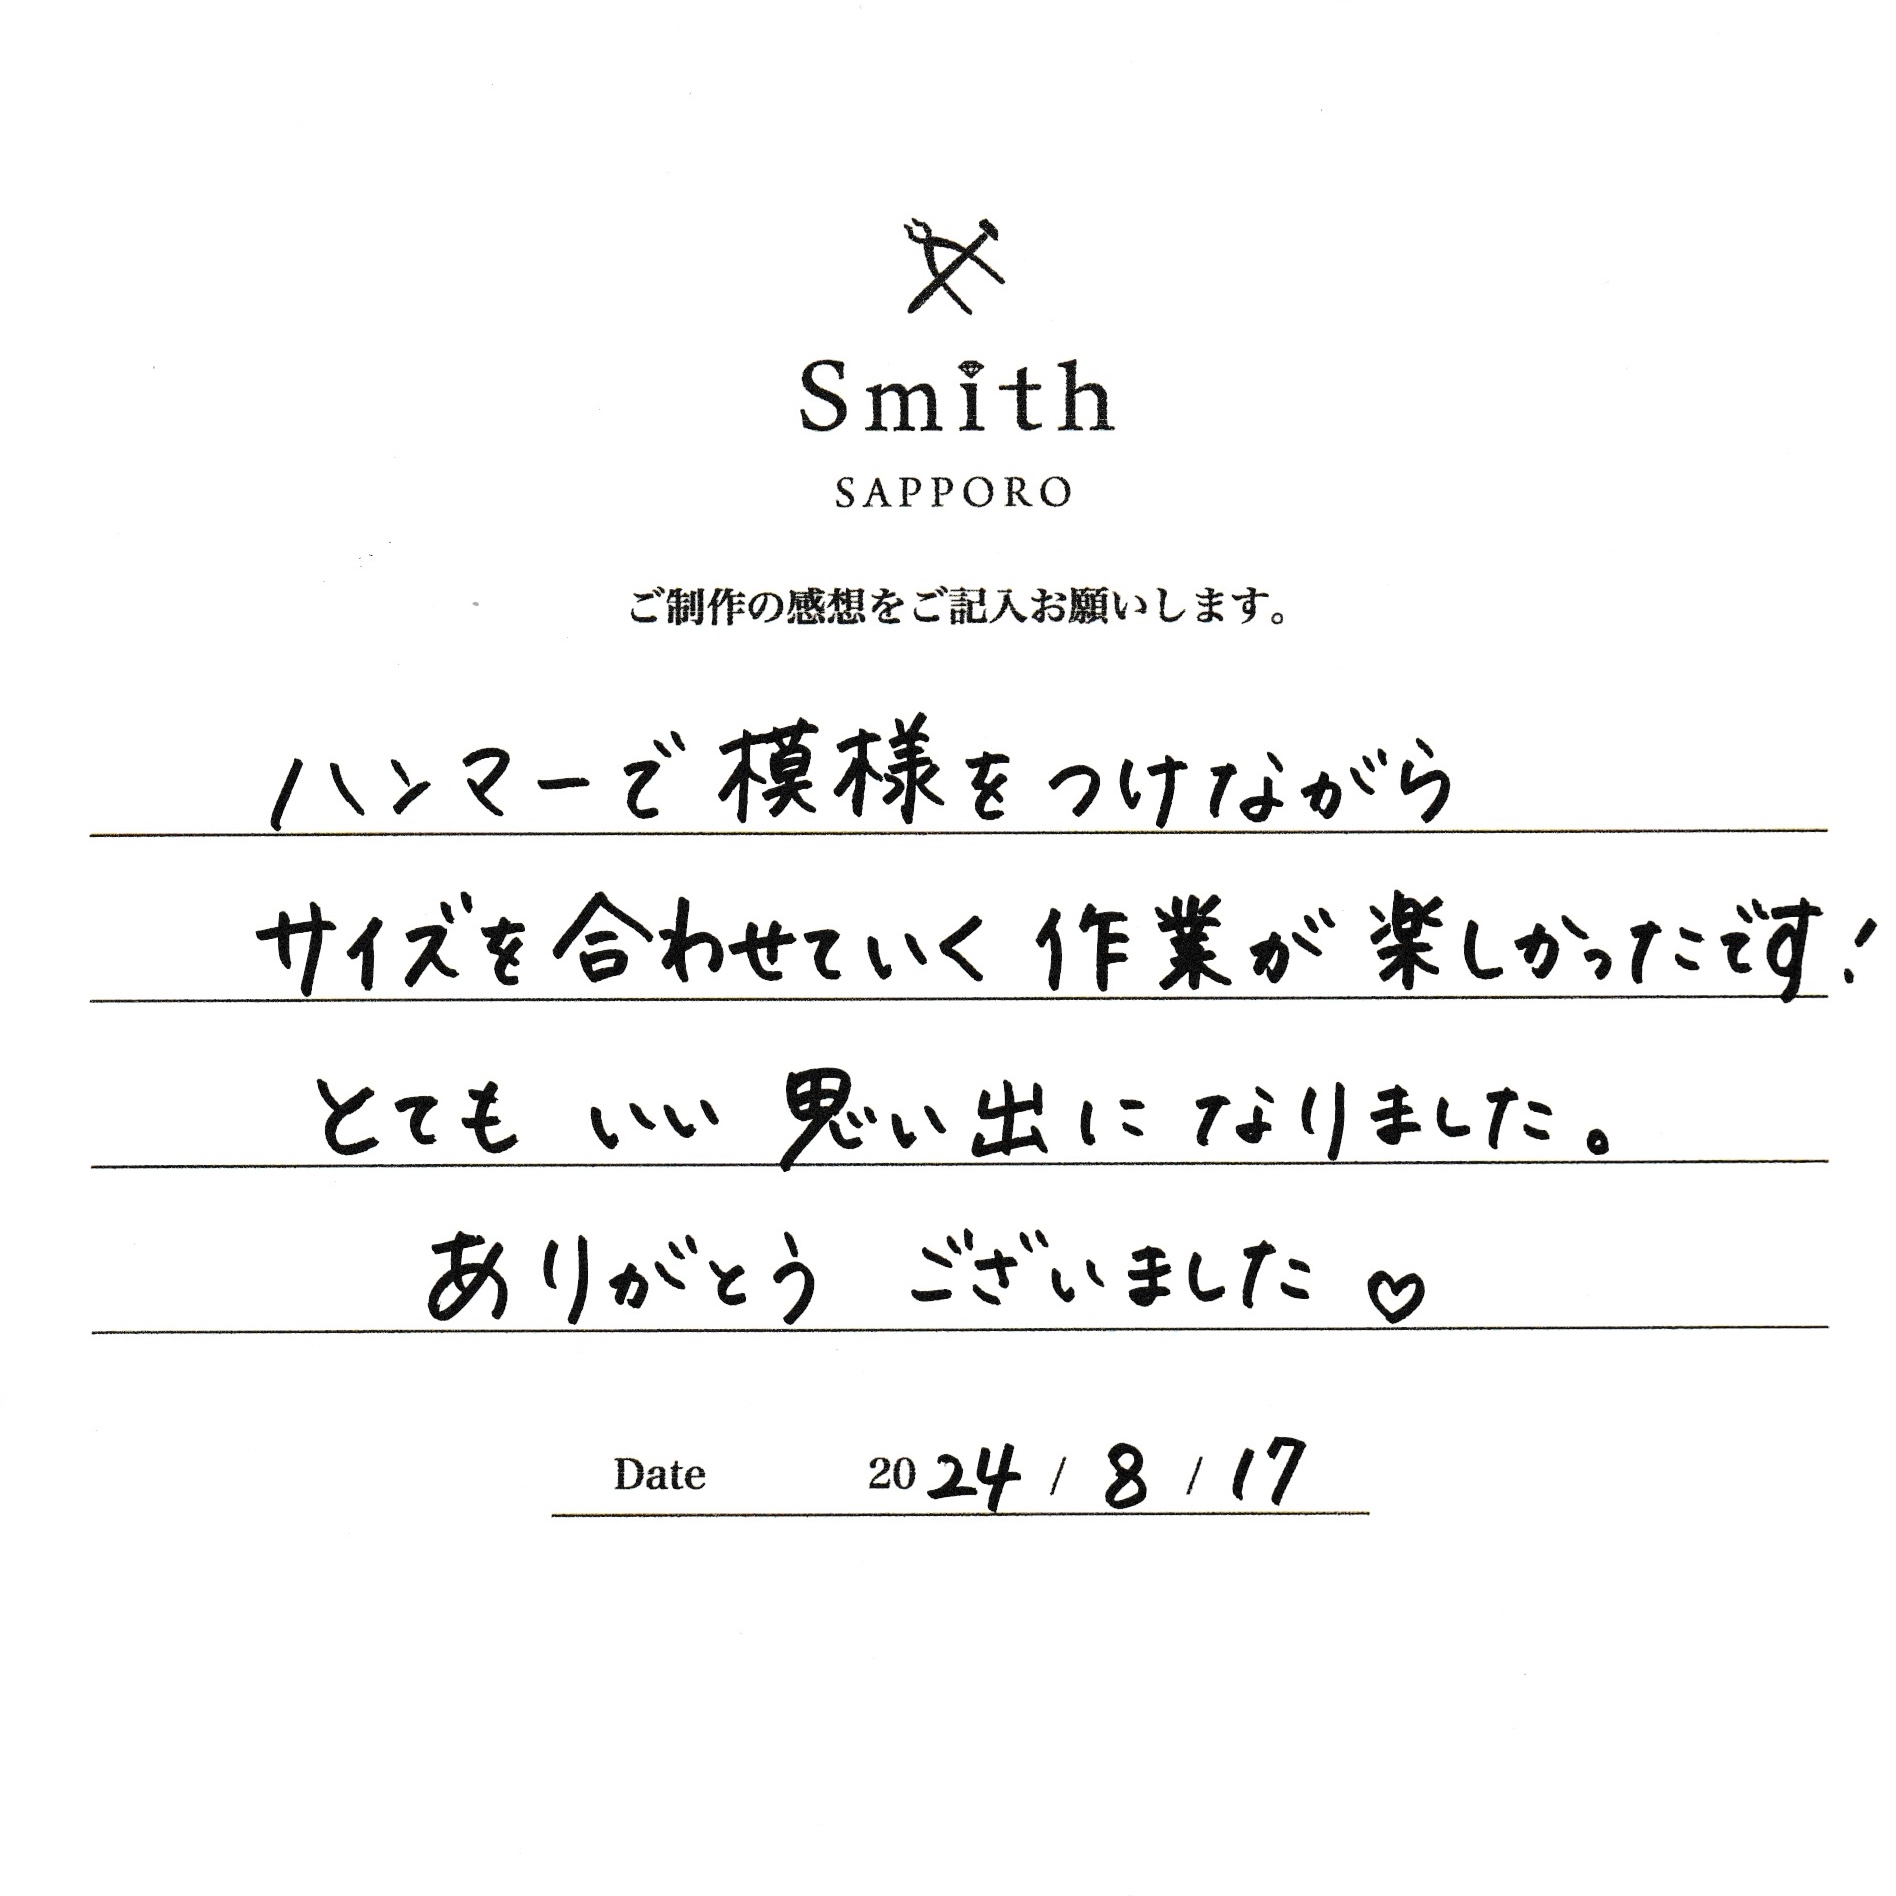 Smith
SAPPORO
ご制作の感想をご記入お願いします。
ハンマーで模様をつけながら
サイズを合わせていく作業が楽しかったです!
とても いい 思い出に なりました。
ありがとう ございました♡
Date 2024 / 8 / 17